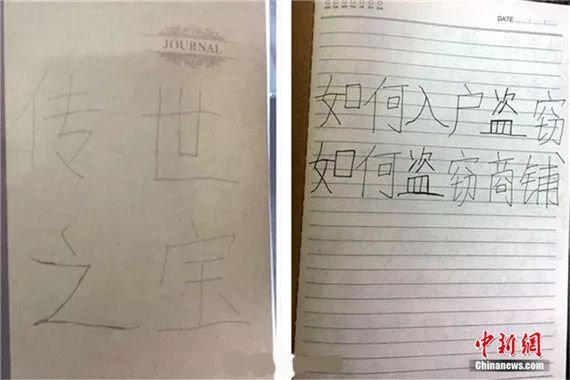 JOURNAL
传世
之宝
DATE
如何入户盗窃
如何盗窃商铺
中新網
Chinanews.com